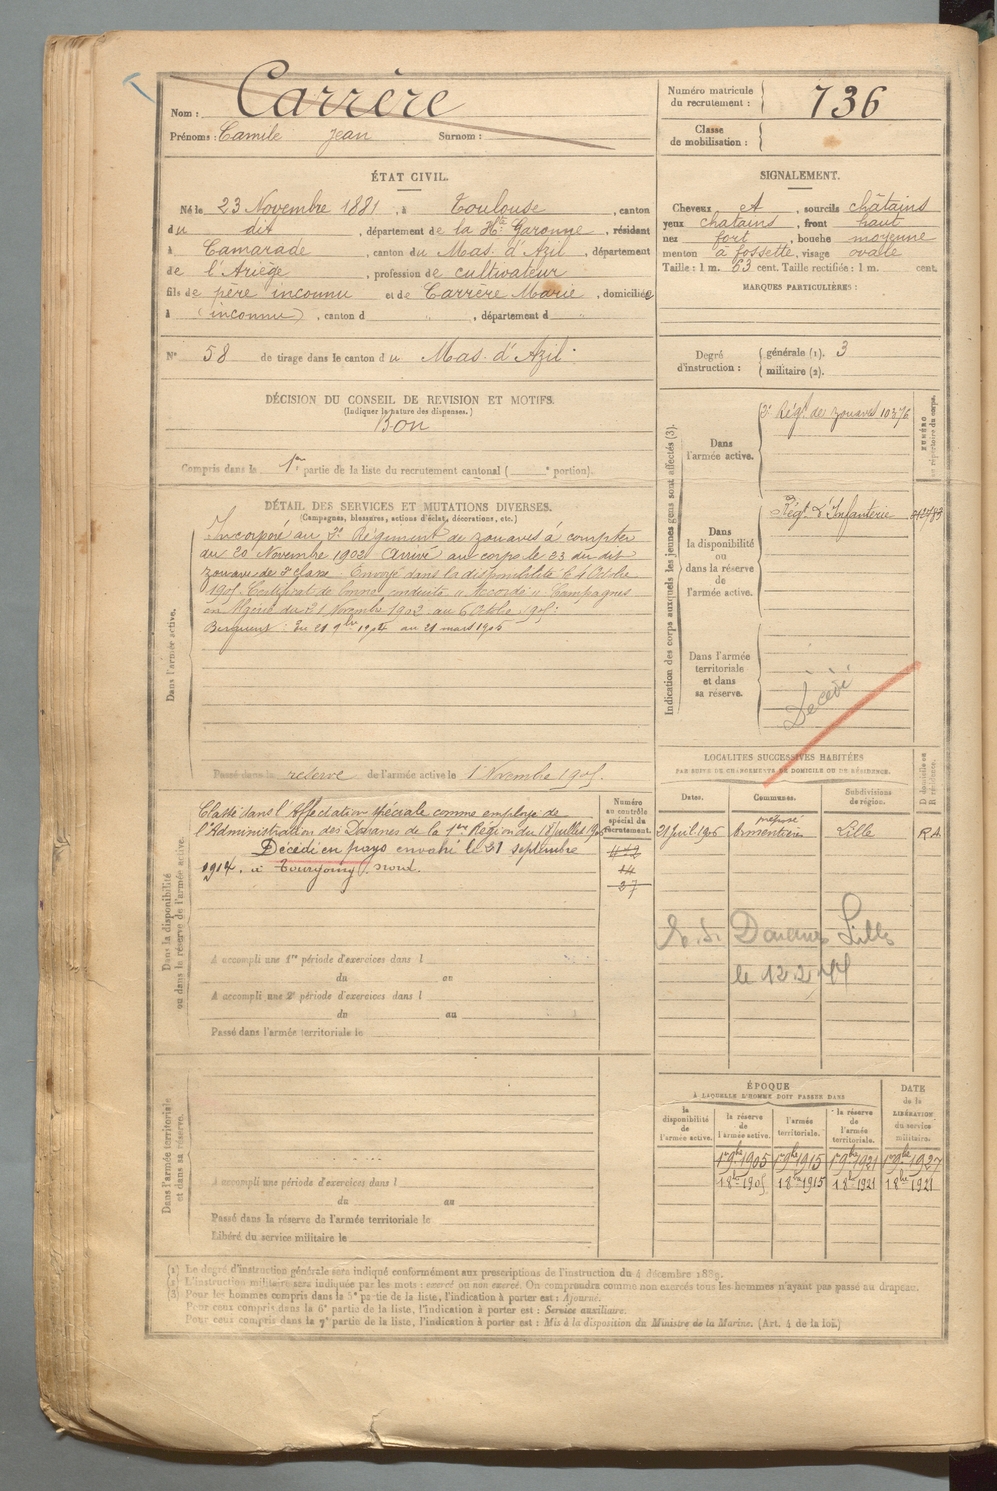 Nom : Carrère
Prénoms : Camile Jean Surnom :
Numéro matricule du recrutement : 736
Classe de mobilisation :
ÉTAT CIVIL.
Né le 23 Novembre 1881, à Toulouse, canton
du dit, département de la Hte Garonne, résidant
à Camarade, canton du Mas. d'Azil, département
de l'Ariège, profession de cultivateur
fils de père inconnu et de Carrère Marie, domiciliée
à (inconnu), canton d " , département d "
N° 58 de tirage dans le canton du Mas. d'Azil.
SIGNALEMENT.
Cheveux et, sourcils châtains
yeux chatains, front haut
nez fort, bouche moyenne
menton à fossette, visage ovale
Taille : 1 m. 63 cent. Taille rectifiée : 1 m. cent.
MARQUES PARTICULIÈRES :
Degré d'instruction : générale (1). 3
militaire (2).
DÉCISION DU CONSEIL DE REVISION ET MOTIFS.
(Indiquer la nature des dispenses.)
Bon
Compris dans la 1re partie de la liste du recrutement cantonal ( e portion).
DÉTAIL DES SERVICES ET MUTATIONS DIVERSES.
(Campagnes, blessures, actions d'éclat, décorations, etc.)
Dans l'armée active.
Incorporé au 3e Régiment de zouaves à compter
du 20 Novembre 1902 Arrivé au corps le 23 du dit
zouave de 2e classe. Envoyé dans la disponibilité le 4 Octobre
1905. Certificat de bonne conduite "Accordé" Campagnes
en Algérie du 21 Novembre 1902 au 6 Octobre 1905.
du 21 9bre 1904 au 21 mars 1905
Passé dans la réserve de l'armée active le 1 Novembre 1905.
Indication des corps auxquels les jeunes gens sont affectés (3).
NUMÉRO au répertoire du corps.
Dans l'armée active.
3e Régt de zouaves 10376
Dans la disponibilité ou dans la réserve de l'armée active.
Régt d'Infanterie
Dans l'armée territoriale et dans sa réserve.
Décédé
Dans la disponibilité ou dans la réserve de l'armée active.
Classé dans l'Affectation spéciale comme employé de
l'Administration des Douanes de la 1re Région du 18 juillet
Décédé en pays envahi le 21 septembre
1914. à Tourcoing, nord.
Numéro au contrôle spécial du recrutement.
14
27
A accompli une 1re période d'exercices dans l
du au
A accompli une 2e période d'exercices dans l
du au
Passé dans l'armée territoriale le
LOCALITÉS SUCCESSIVES HABITÉES
PAR SUITE DE CHANGEMENTS DE DOMICILE OU DE RÉSIDENCE.
Dates. Communes. Subdivisions de région. D domicile ou R résidence.
préposé
21 Juil. 1906 Armentières Lille R.A.
Douanes Lille
Dans l'armée territoriale et dans sa réserve.
A accompli une période d'exercices dans l
du au
Passé dans la réserve de l'armée territoriale le
Libéré du service militaire le
ÉPOQUE
À LAQUELLE L'HOMME DOIT PASSER DANS
la disponibilité de l'armée active. la réserve de l'armée active. l'armée territoriale. la réserve de l'armée territoriale. DATE de la LIBÉRATION du service militaire.
1 9bre 1905 1 9bre 1915 1 9bre 1921 1 9bre 1927
1 8bre 1905 1 8bre 1915 1 8bre 1921 1 8bre 1921
(1) Le degré d'instruction générale sera indiqué conformément aux prescriptions de l'instruction du 4 décembre 1889.
(2) L'instruction militaire sera indiquée par les mots : exercé ou non exercé. On comprendra comme non exercés tous les hommes n'ayant pas passé au drapeau.
(3) Pour les hommes compris dans la 5e partie de la liste, l'indication à porter est : Ajourné.
Pour ceux compris dans la 6e partie de la liste, l'indication à porter est : Service auxiliaire.
Pour ceux compris dans la 7e partie de la liste, l'indication à porter est : Mis à la disposition du Ministre de la Marine. (Art. 4 de la loi.)